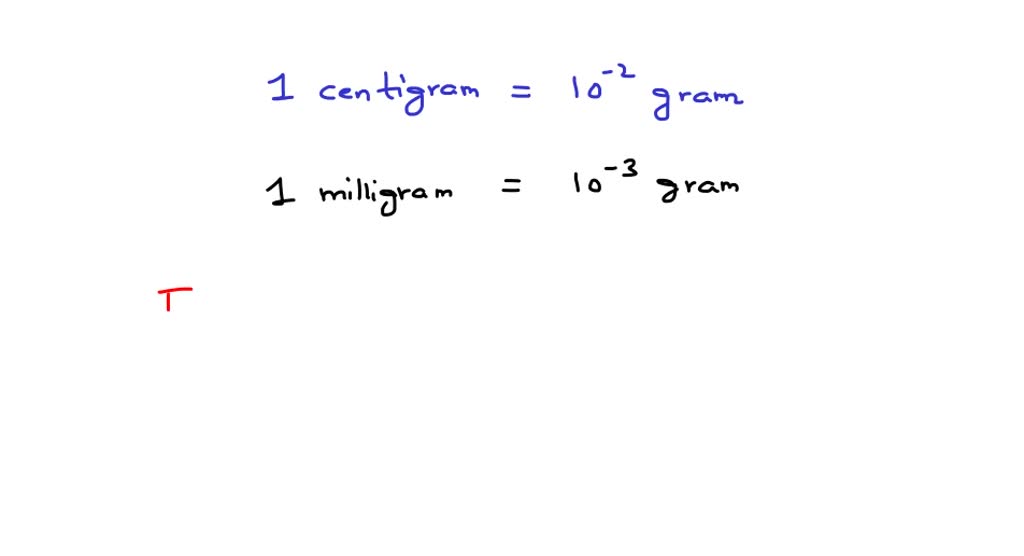 1 centigram = 10⁻² gram
1 milligram = 10⁻³ gram
T